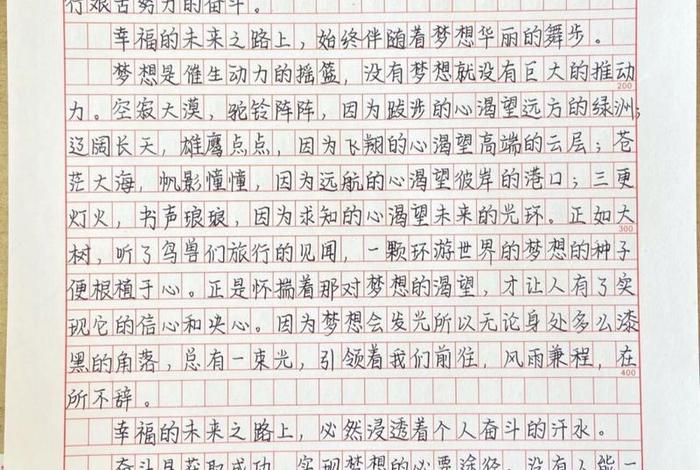 行艰苦努力的奋斗。
幸福的未来之路上，始终伴随着梦想华丽的舞步。
梦想是催生动力的摇篮，没有梦想就没有巨大的推动
200
力。空寂大漠，驼铃阵阵，因为跋涉的心渴望远方的绿洲；
辽阔长天，雄鹰点点，因为飞翔的心渴望高端的云层；苍
茫大海，帆影憧憧，因为远航的心渴望彼岸的港口；三更
灯火，书声琅琅，因为求知的心渴望未来的光环。正如大
300
树，听了鸟兽们旅行的见闻，一颗环游世界的梦想的种子
便根植于心。正是怀揣着那对梦想的渴望，才让人有了实
现它的信心和决心。因为梦想会发光所以无论身处多么漆
黑的角落，总有一束光，引领着我们前往，风雨兼程，在
400
所不辞。
幸福的未来之路上，必然浸透着个人奋斗的汗水。
奋斗是获取成功、实现梦想的必要途径。没有人能一